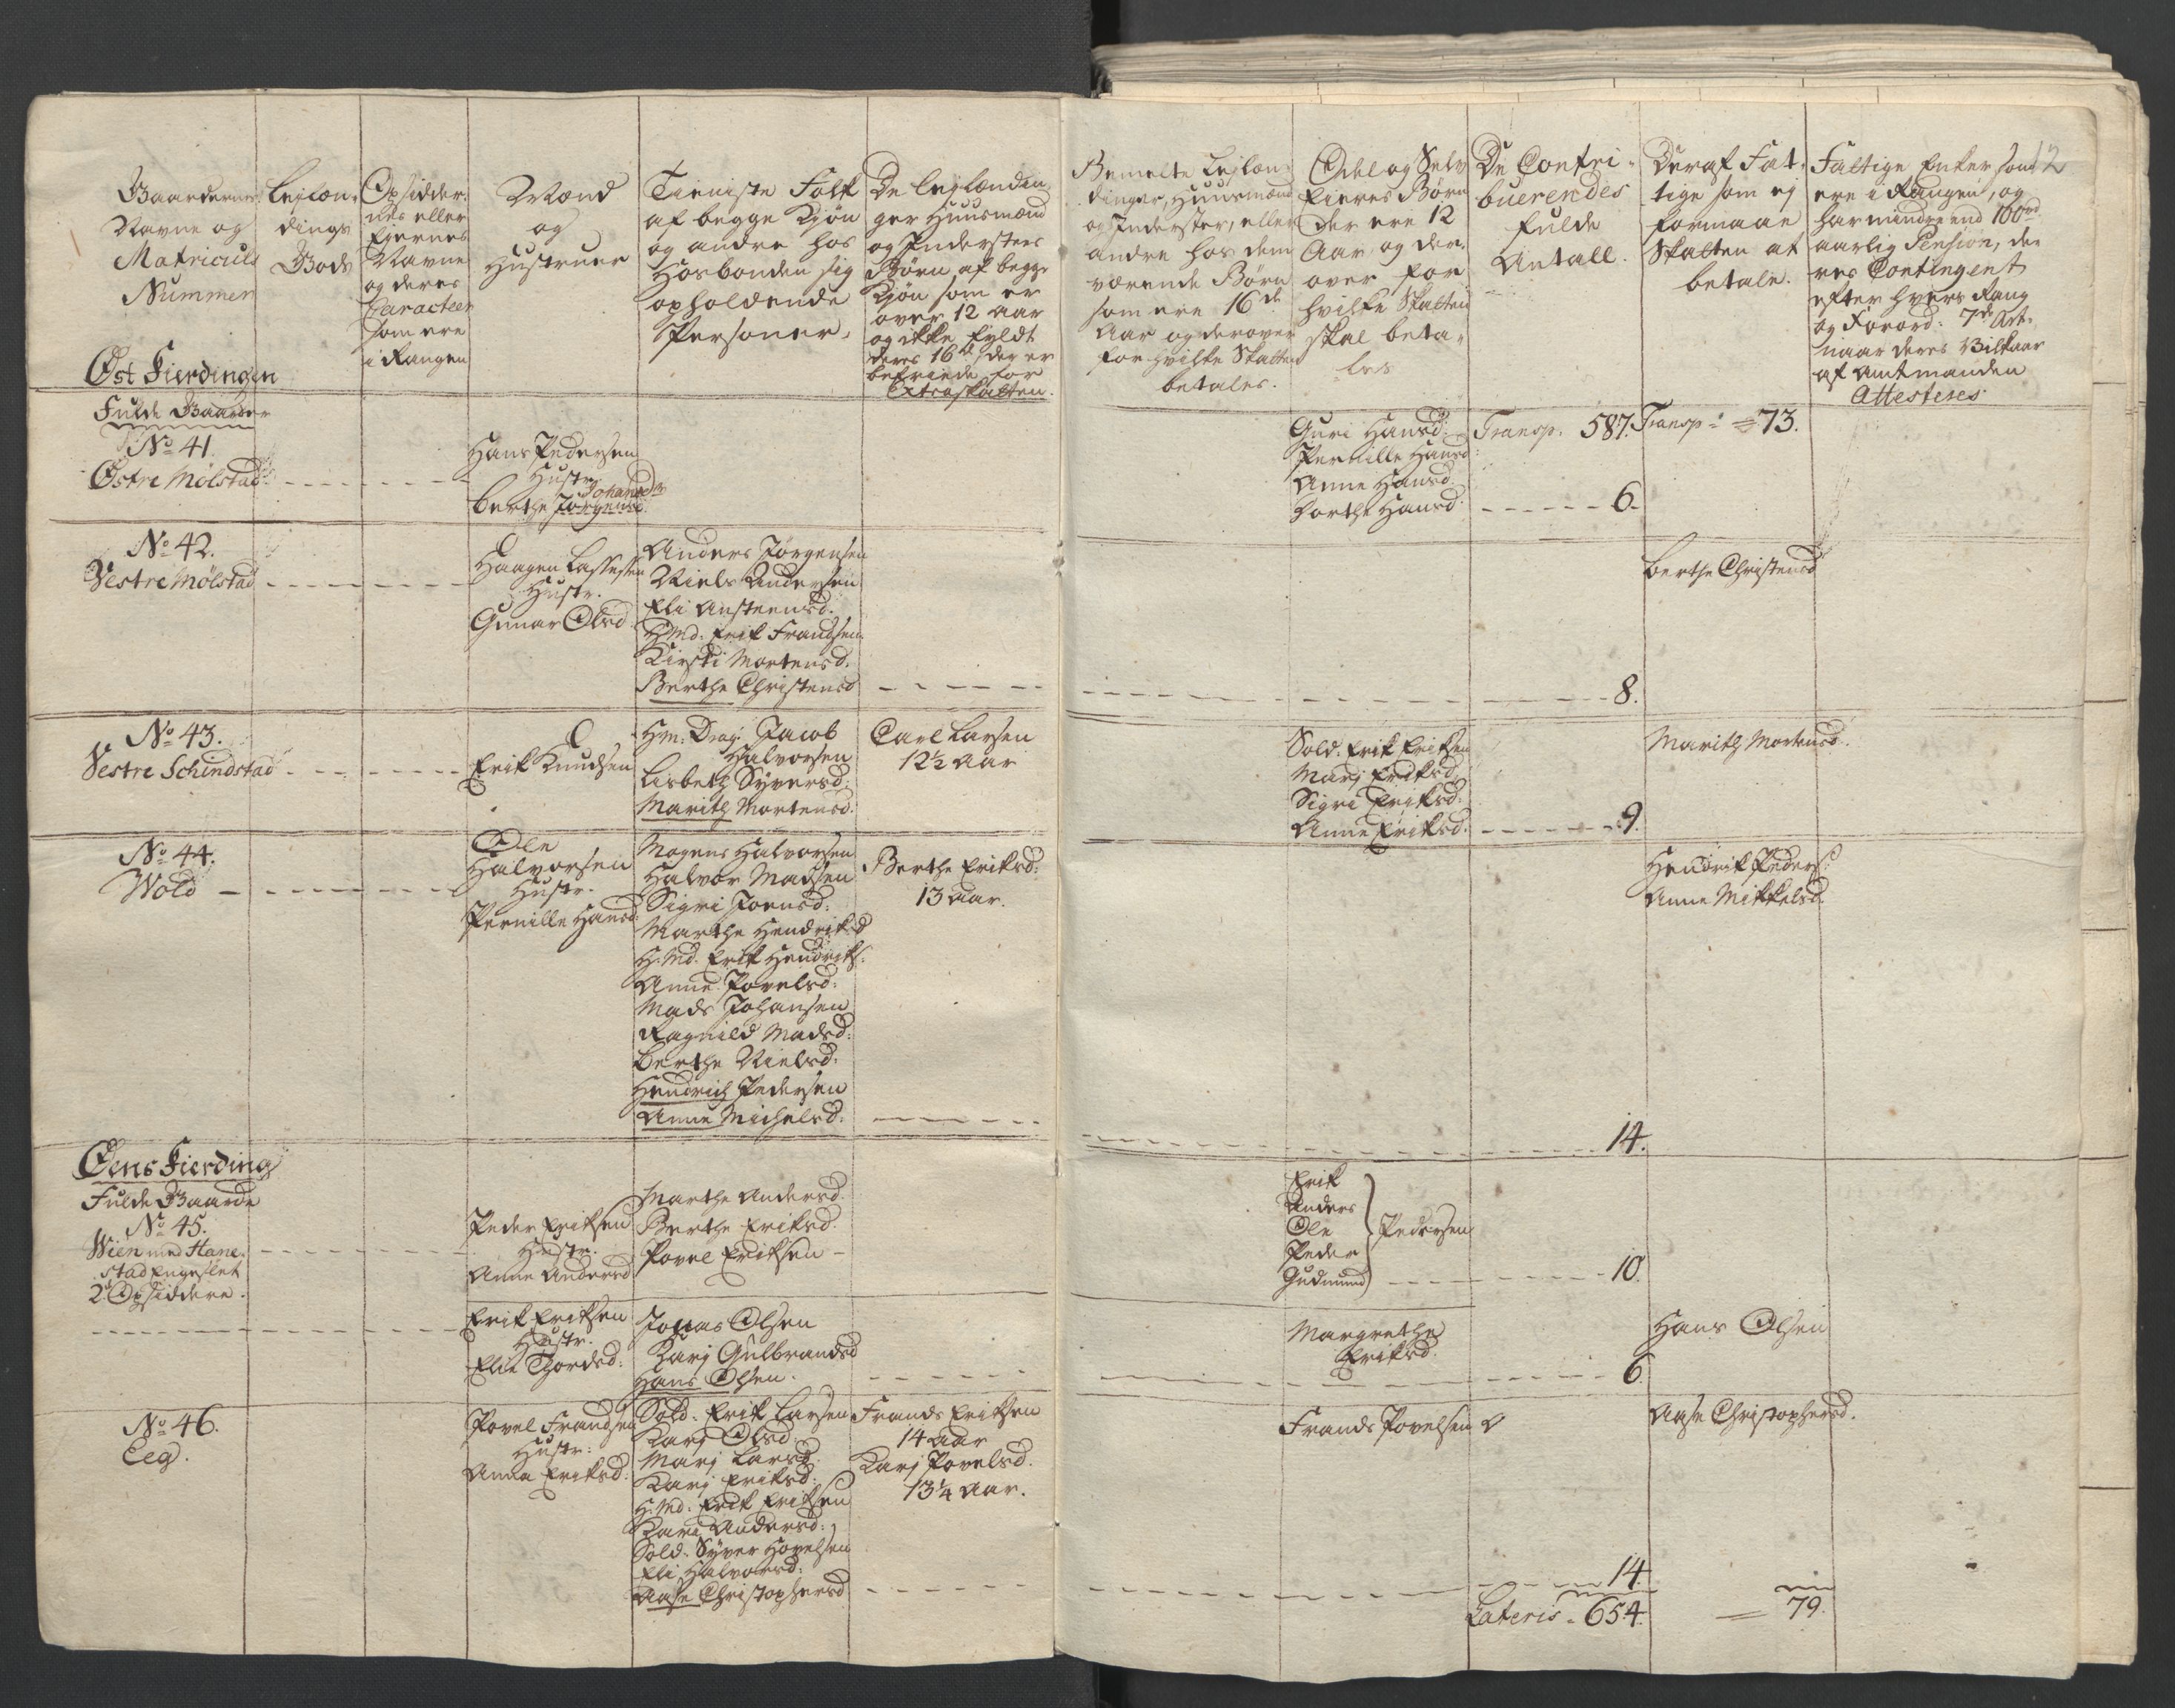 Gaardernes
Navne og
Matriculs
Nummer
Øst Fierdingen
Leilæn-
dings
Gods
Opsidder-
nes eller
Eiernes
Navne
og deres
Caracteer
som ere
i Rangen
Mænd
og
Hustruer
Tieniste Folk
af begge Kjøn
og andre hos
Hosbonden sig
opholdende
Personer.
De leilændin-
ger Huusmænd
og Indersters
Børn af begge
Kjøn som er
over 12 Aar
og ikke fyldt
deres 16de der er
befriede for
Extraskatten.
Bemelte Leilæn-
dinger, Huusmænd
og Inderster, eller
andre hos dem
værende Børn
som ere 16de
Aar og derover
for hvilke Skatten
betales.
Odel og Selv
Eieres Børn
der ere 12
Aar og der-
over for
hvilke Skatten
skal beta-
les
De Contri-
buerendes
fulde
Antall.
Deraf Fat-
tige som ej
formaae
Skatten at
betale.
Fattige Enker som
ere i Rangen, og
har mindre end 100rd
aarlig Pension, de-
res Contingent
efter hvers Rang
og Forord: 7de Art:
naar deres Vilkaar
af Amtmanden
Attesteres
12
Fulde Gaarder
No 41.
Østre Mølstad
Hans Pedersen
Hustr.
Johansd
Berthe Jørgensd
Guri Hansd:
Pernille Hansd:
Anne Hansd.
Dorthe Hansd.
Transp. 587.
6.
Transp: = 73.
No 42.
Vestre Mølstad
Haagen Lassesen
Hustr.
Gunar Olsd.
Anders Jørgensen
Niels Andersen
Eli Austensd.
HMd. Erik Frandsen
Kirsti Mortensd.
Berthe Christensd
8.
Berthe Christensd
No 43.
Vestre Schindstad
Erik Knudsen
Hm: Drag: Jacob
Halvorsen
Lisbeth Syversd:
Marith Mortensd.
Carl Larsen
12½ Aar
Sold. Erik Eriksen
Marj Eriksd:
Sigri Eriksd:
Anne Eriksd.
9.
Marith Mortensd.
No 44.
Wold
Ole
Halvorsen
Hustr.
Pernille Hansd:
Mogens Halvorsen
Halvor Madsen
Sigri Joensd:
Marthe Hendriksd
H:Md. Erik Hendriks:
Anne Povelsd:
Mads Johansen
Ragnild Madsd:
Berthe Nielsd:
Hendrich Pedersen
Anne Michelsd:
Berthe Eriksd:
13 Aar.
14.
Hendrik Peders:
Anne Mikkelsd.
Øens Fierding
Fulde Gaarde
No 45.
Wien med Hane-
stad Engeslet
2 Opsiddere.
Peder Eriksen
Hustr.
Anne Andersd
Marthe Andersd.
Berthe Eriksd.
Povel Eriksen
Erik
Anders
Ole
Peder
Gudmund
Pedersen
10.
Erik Eriksen
Hustr.
Elie Thordsd:
Jonas Olsen
Karj Gulbrandsd
Hans Olsen.
Margrethe
Eriksd.
6.
Hans Olsen
No 46.
Eeg.
Povel Frandsen
Hustr:
Anna Eriksd:
Sold: Erik Larsen
Karj Olsd:
Marj Larsd.
Karj Eriksd:
H:Md: Erik Eriksen
Kari Andersd:
Sold. Syver Hovelsen
Eli Halvorsd:
Aase Christophersd
Frands Eriksen
14 Aar
Karj Povelsd.
13¼ Aar.
Frands Povelsen
Aase Christophersd.
14.
Lateris. 654.
= 79.